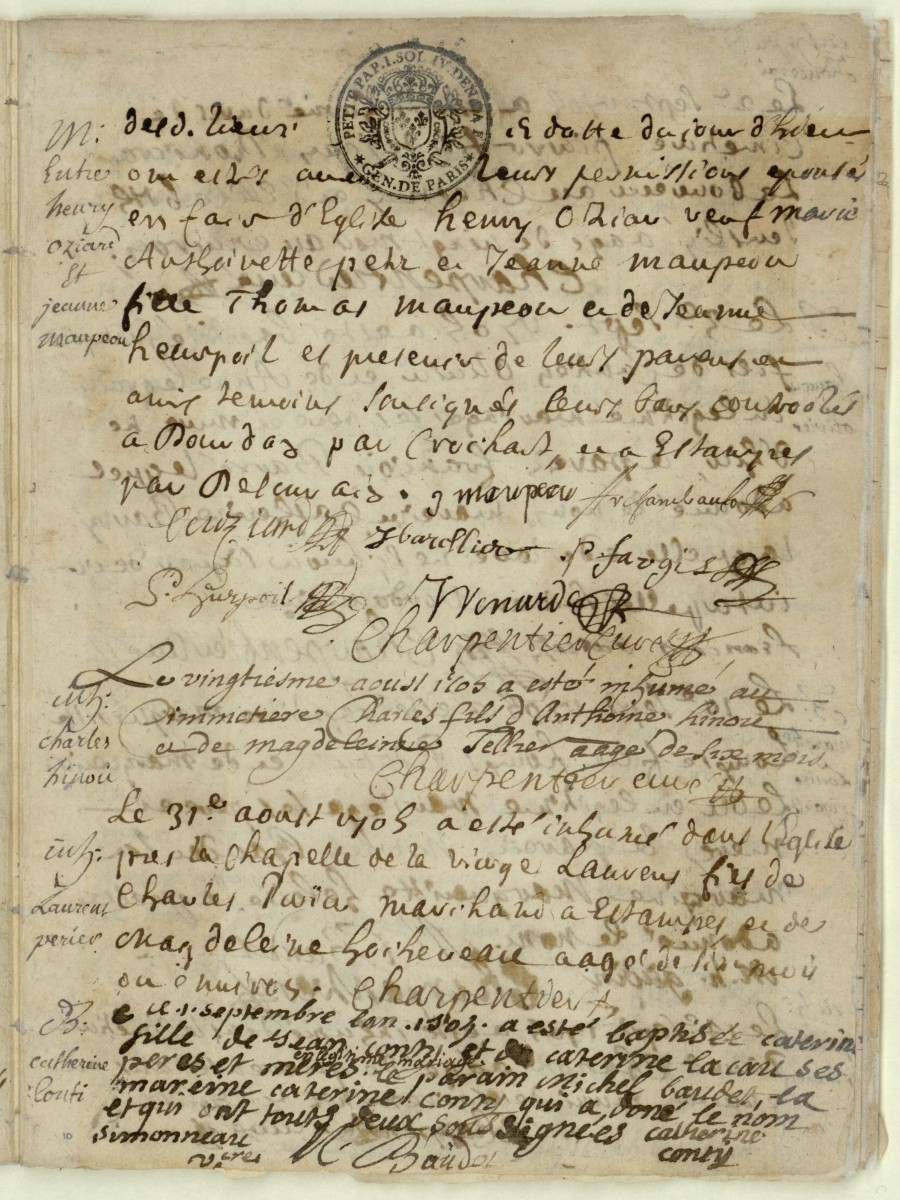 PETIT PAP. I. SOL IV. DEN LA F.
GEN. DE PARIS
M:
Entre
henry
Oziard
Et
jeanne
maupeou
desd. lieux et datte du jour d'hier
ont estes avec leurs permissions epousés
en face d'Eglise henry Oziar veuf marie
Anthoinette petit et Jeanne maupeou
fille Thomas maupeou et de Jeanne
heurpoil es presences de leurs parens et
amis temoins Sousignés leurs bans controolés
a Dourdan par Crochart, et a Estampes
par . j maupeou
. P. fargis
P. heurpoil
Charpentier Curé
inh:
charles
hinou
Le vingtiesme aoust 1705 a esté inhumé au
Cimmetiere Charles fils d'Anthoine hinou
et de magdeleinne Tellier aagé de six mois
Charpentier curé
inh:
Laurent
perier
Le 31.e aoust 1705 a esté inhumé dans l'Eglise
pres la Chapelle de la vierge Laurens fils de
Charles marchand a Estampes et de
magdeleine hochereau aagé de six mois
ou environ. Charpentier
B:
catherine
Conti
Ce 1. septembre lan .1705. a esté baptisée caterine
fille de Jean conty et de caterine lacau ses
peres et meres en legitime mariage le parain michel baudet, la
mareine caterine conty qui a doné le nom
et qui ont touts deux sous signees catherine
simonneau Baudet conty
vires